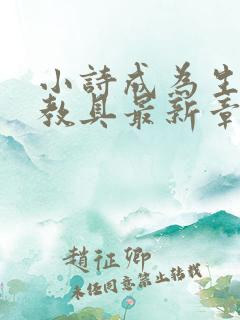 小詩成為生
教具最新章
趙征卿
未任同意禁止转载